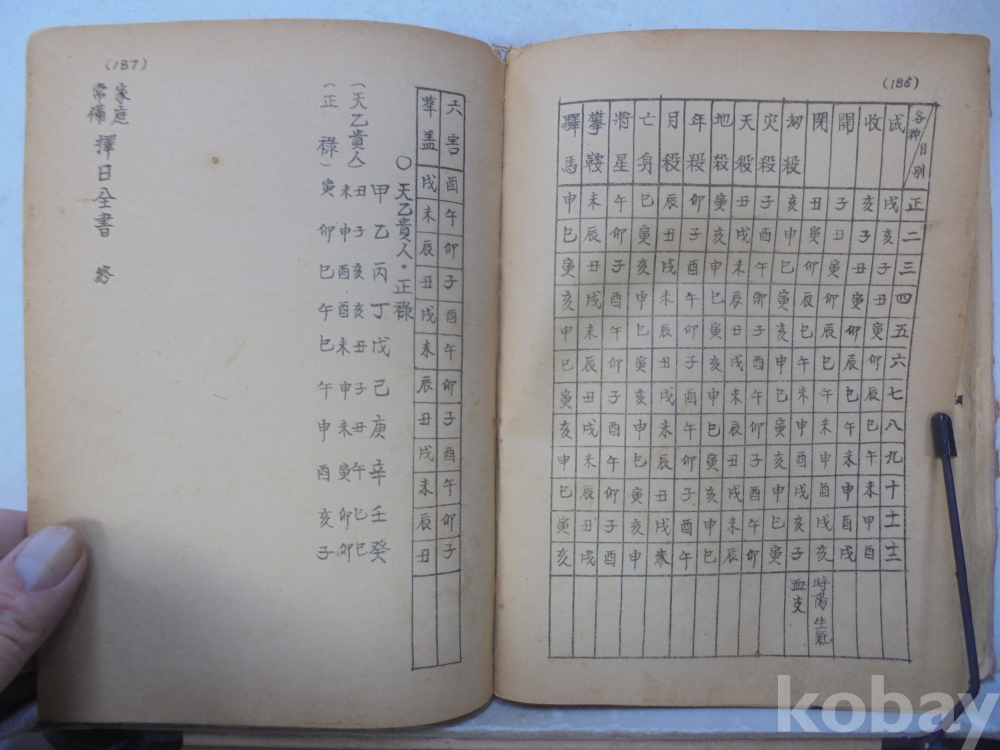 (186)
各神 月別 正 二 三 四 五 六 七 八 九 十 十一 十二
成 戌 亥 子 丑 寅 卯 辰 巳 午 未 申 酉
收 亥 子 丑 寅 卯 辰 巳 午 未 申 酉 戌
開 子 丑 寅 卯 辰 巳 午 未 申 酉 戌 亥 時陽 生氣
閉 丑 寅 卯 辰 巳 午 未 申 酉 戌 亥 子 血支
劫殺 亥 申 巳 寅 亥 申 巳 寅 亥 申 巳 寅
災殺 子 酉 午 卯 子 酉 午 卯 子 酉 午 卯
天殺 丑 戌 未 辰 丑 戌 未 辰 丑 戌 未 辰
地殺 寅 亥 申 巳 寅 亥 申 巳 寅 亥 申 巳
年殺 卯 子 酉 午 卯 子 酉 午 卯 子 酉 午
月殺 辰 丑 戌 未 辰 丑 戌 未 辰 丑 戌 未
亡身 巳 寅 亥 申 巳 寅 亥 申 巳 寅 亥 申
將星 午 卯 子 酉 午 卯 子 酉 午 卯 子 酉
攀鞍 未 辰 丑 戌 未 辰 丑 戌 未 辰 丑 戌
驛馬 申 巳 寅 亥 申 巳 寅 亥 申 巳 寅 亥
(187)
六害 酉 午 卯 子 酉 午 卯 子 酉 午 卯 子
華盖 戌 未 辰 丑 戌 未 辰 丑 戌 未 辰 丑
○天乙貴人·正祿
甲 乙 丙 丁 戊 己 庚 辛 壬 癸
(天乙貴人) 丑未 子申 亥酉 亥酉 丑未 子申 丑未 午寅 巳卯 巳卯
(正祿) 寅 卯 巳 午 巳 午 申 酉 亥 子
家庭常備 擇日全書 終
kobay